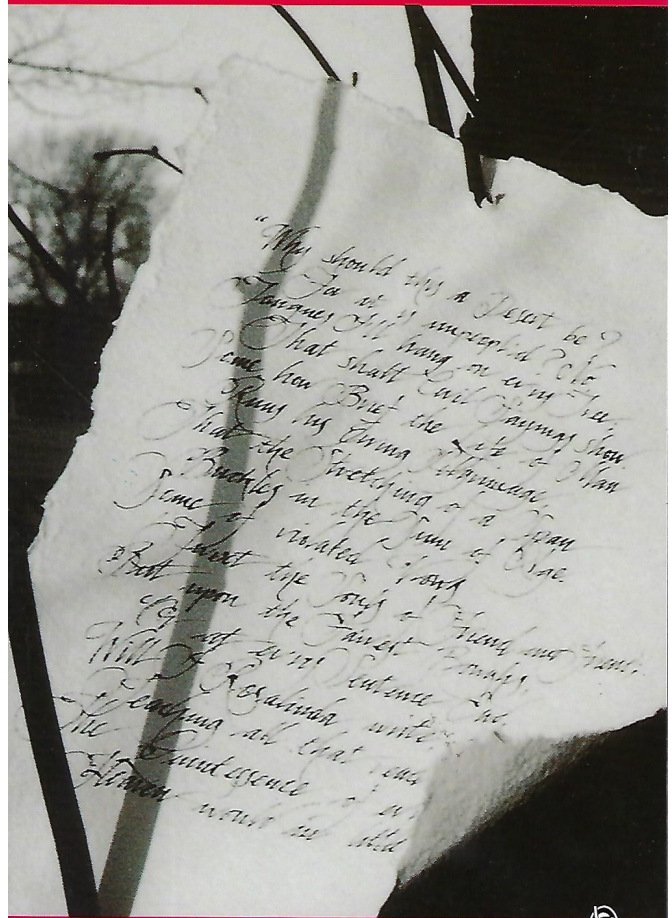 "Why should this a Desert be?
For it is unpeopled? No,
Tongues I'll hang on every Tree,
That shall Civil Sayings show.
Some how Brief the Life of Man
Runs his Erring Pilgrimage,
That the Stretching of a Span
Buckles in the Sum of Age.
Some of violated Vows
'Twixt the Souls of Friend and Friend.
But upon the Fairest Boughs,
Or at every Sentence End,
Will I Rosalinda write
Teaching all that read
The Quintessence of ev
Heaven would in little